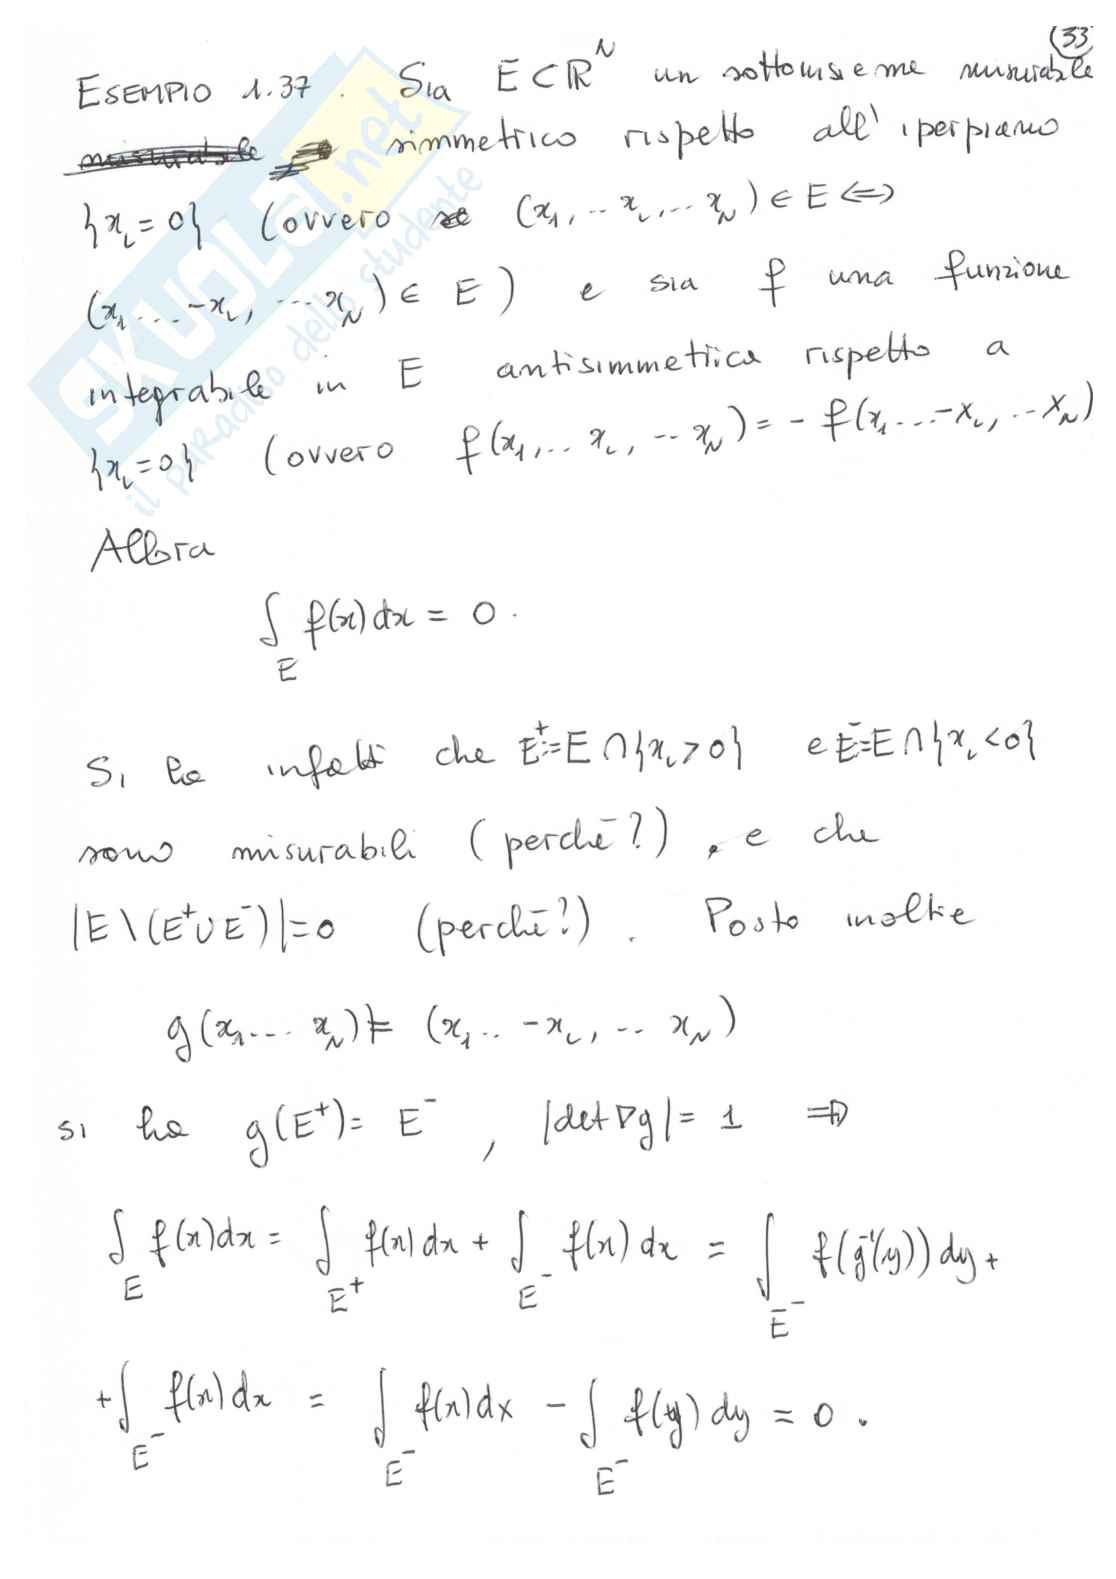 33
ESEMPIO 1.37. Sia E ⊂ ℝ^N un sottoinsieme misurabile
simmetrico rispetto all'iperpiano
{x_i = 0} (ovvero (x_1, .. x_i, .. x_N) ∈ E ⟺
(x_1 ... -x_i, ... x_N) ∈ E) e sia f una funzione
integrabile in E antisimmetrica rispetto a
{x_i = 0} (ovvero f(x_1, ... x_i, .. x_N) = - f(x_1 ... -x_i, .. x_N)
Allora
∫_E f(x) dx = 0.
Si ha infatti che E^+ := E ∩ {x_i > 0} e E^- := E ∩ {x_i < 0}
sono misurabili (perché?), e che
|E \ (E^+ ∪ E^-)| = 0 (perché?). Posto inoltre
g(x_1 ... x_N) := (x_1 .. -x_i, .. x_N)
si ha g(E^+) = E^-, |det ∇g| = 1 ⇒
∫_E f(x) dx = ∫_{E^+} f(x) dx + ∫_{E^-} f(x) dx = ∫_{E^-} f(g^{-1}(y)) dy +
+ ∫_{E^-} f(x) dx = ∫_{E^-} f(x) dx - ∫_{E^-} f(y) dy = 0.
SKUOLA.net
il paradiso dello studente